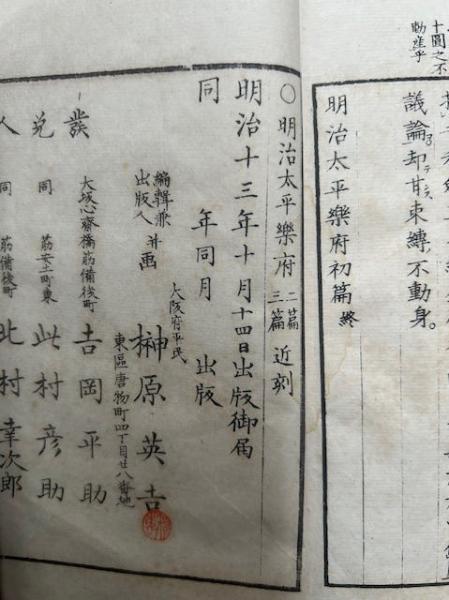 十圓之不
動産乎
議論却甘束縛不動身。
明治太平樂府初篇終
○明治太平樂府二篇三篇近刻
明治十三年十月十四日出版御届
同年同月出版
編輯兼出版人并画
大阪府平民
榊原英吉
東區唐物町四丁目廿八番地
發
兌
人
大坂心齋橋筋備後町
吉岡平助
同筋安土町東
此村彦助
同筋備後町
北村幸次郎